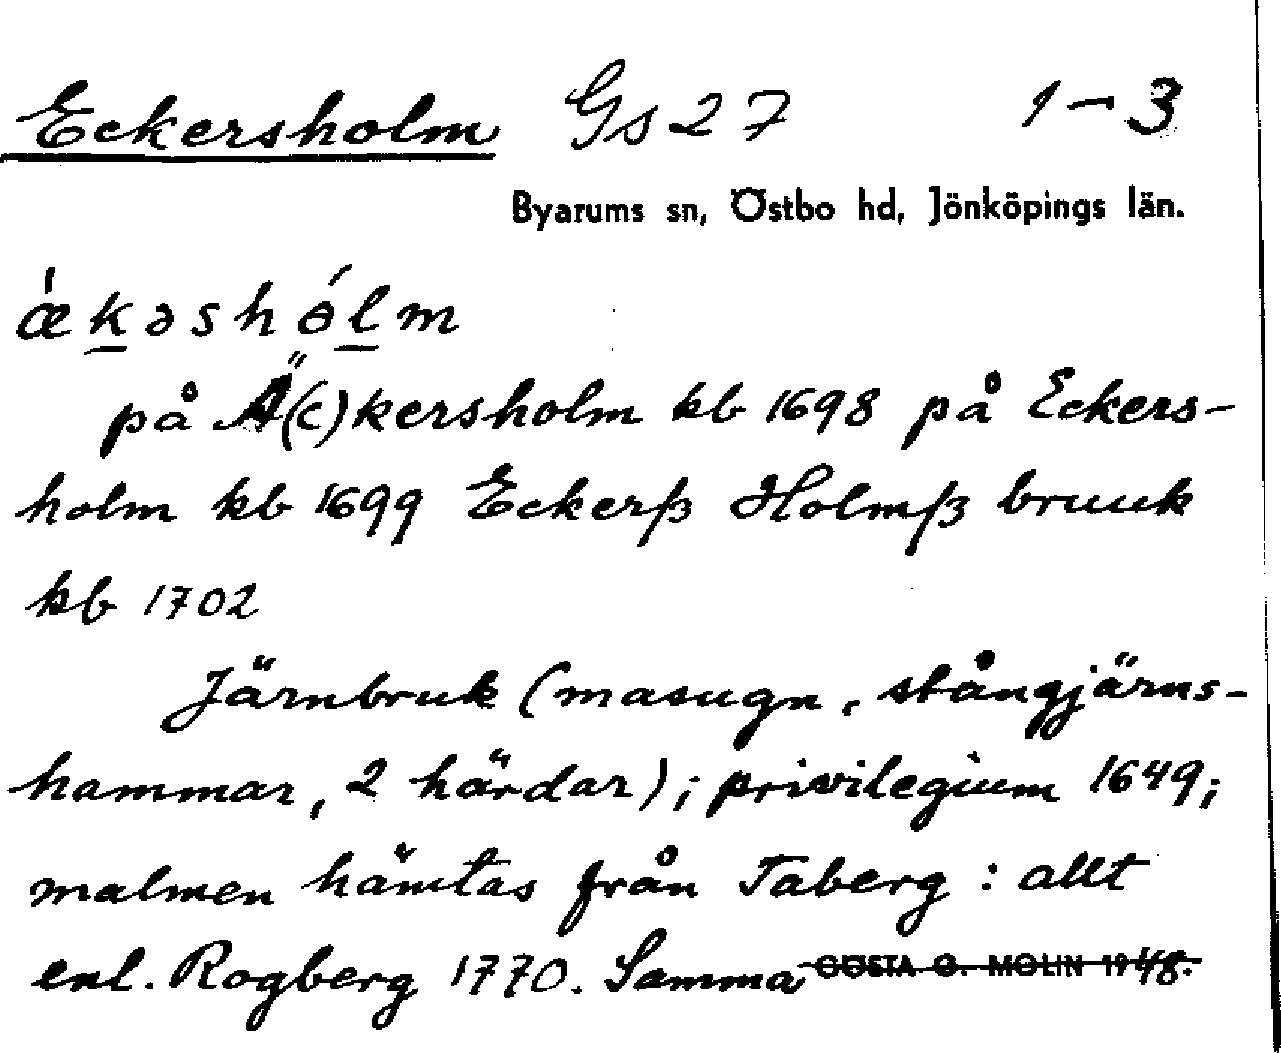 Eckersholm Gs27 1-3
Byarums sn, Östbo hd, Jönköpings län.
ǽkəshólm
på Ä(c)kersholm kb 1698 på Eckers-
holm kb 1699 Eckerß Holmß bruuk
kb 1702
Järnbruk (masugn, stångjärns-
hammar, 2 härdar); privilegium 1649;
malmen hämtas från Taberg: allt
enl. Rogberg 1770. Samma GÖSTA G. MOLIN 1948.